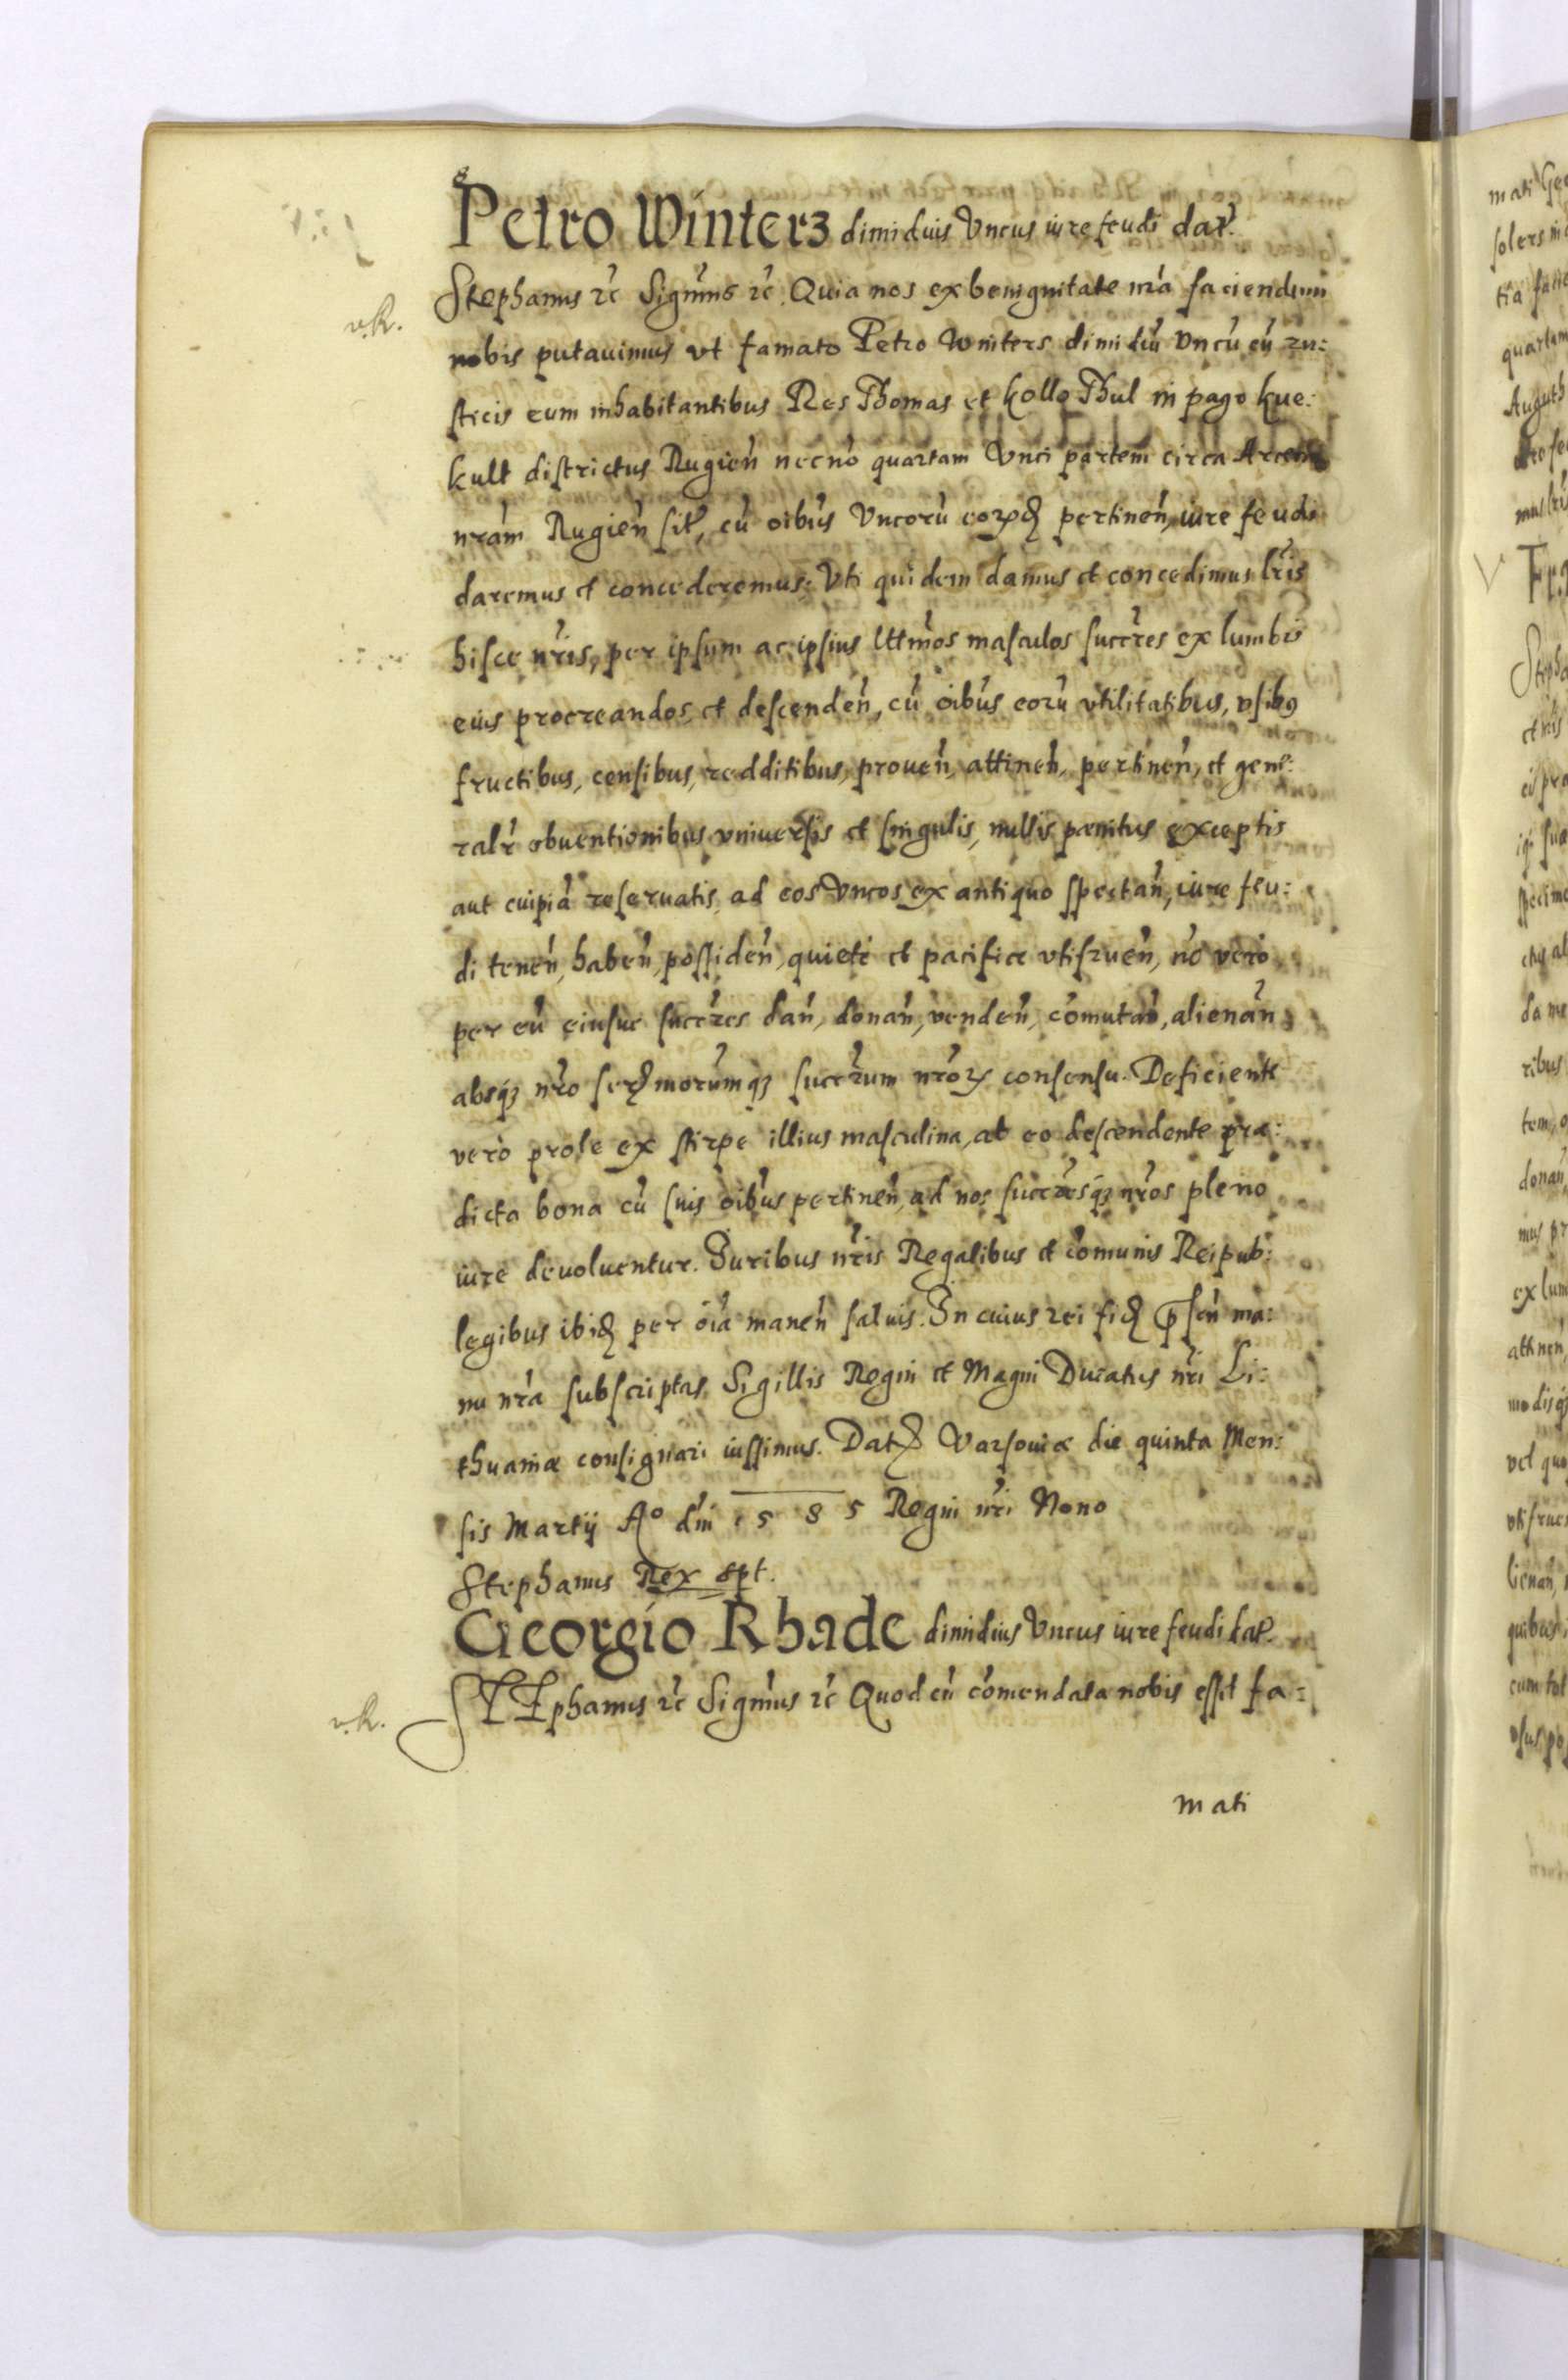 Petro Winterz dimidius Vncus iure feudi dat̃.
Stephanus ꝛc̃ Significamus ꝛc̃. Quia nos ex benignitate nr̃a faciendum
v.R.
nobis putauimus vt famato Petro Winters dimidiũ Vncũ cũ ru:
sticis eum inhabitantibus Res Thomas et Kollo Thul in pago Kue:
kult districtus Rugien̄ necnõ quartam Vnci partem circa Arcem
nr̃am Rugien̄ sit̃, cũ oib̃us Vncorũ eorꝫ pertinen̄, iure feudi
daremus et concederemus: Vti quidem damus et concedimus lr̃is
hisce nr̃is, per ipsum ac ipsius lttm̃os masculos succr̃es ex lumbis
eius procreandos et descenden̄, cũ oib̃us eorũ vtilitatibus, vsibꝰ
fructibus, censibus, redditibus, prouen̄, attinen̄, pertinen̄, et gene:
ralr̃ obuentionibus vniuersis et singulis, nullis pænitus exceptis
aut cuipiã reseruatis, ad eos Vncos ex antiquo spectan̄, iure feu:
di tenen̄, haben̄, possiden̄, quietè et pacifice vtifruen̄, nõ verò
per eũ eiusue succr̃es dan̄, donan̄, venden̄, com̃utan̄, alienan̄
absqꝫ nr̃o serꝫmorumqꝫ succr̃rum nr̃orꝝ consensu. Deficiente
verò prole ex stirpe illius masculina, ab eo descendente præ:
dicta bona cũ suis oib̃us pertinen̄ ad nos succr̃esqꝫ nr̃os pleno
iure deuoluentur. Iuribus nr̃is Regalibus et com̃unis Reipub:
legibus ibidꝫ per oĩa manen̄ saluis. In cuius rei fidꝫ p̃sen̄ ma:
nu nr̃a subscriptas Sigillis Regni et Magni Ducatus nr̃i Li:
thuaniæ consignari iussimus. Datꝫ Varsouiæ die quinta Men:
sis Martij Aº dñi 1585 Regni nr̃i Nono
Stephanus Rex spt.
Georgio Rhade dimidius Vncus iure feudi dat̃.
STEphanus ꝛc̃ Signm̃us ꝛc̃ Quod cũ com̃endata nobis esset fa:
v.R.
mati